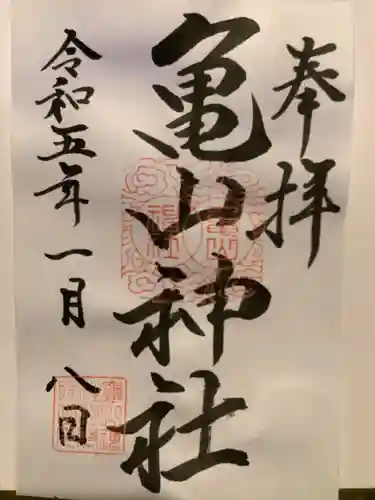 奉拝
亀山神社
令和五年一月八日